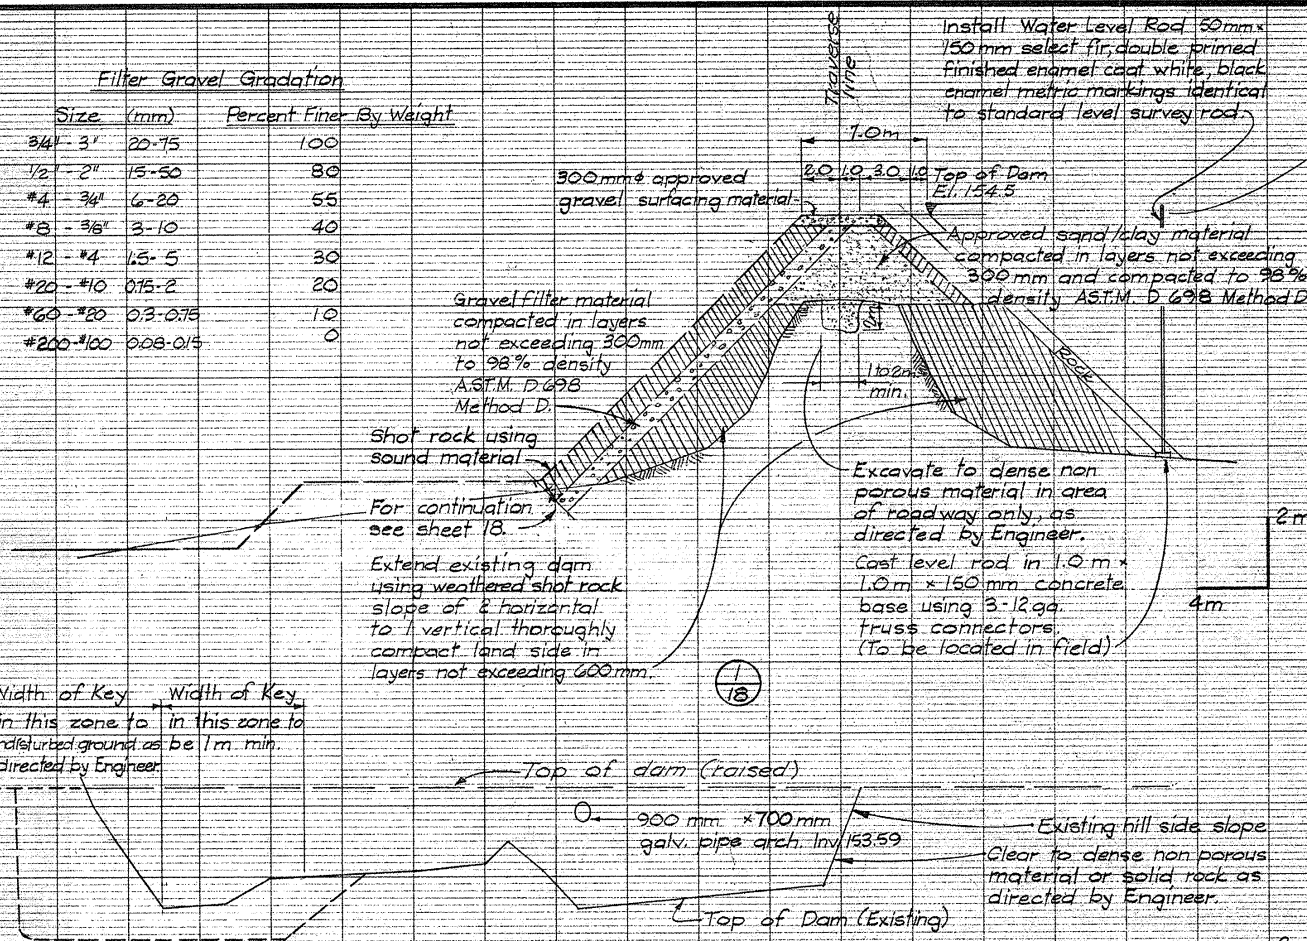 Filter Gravel Gradation
Size (mm) Percent Finer By Weight
3/4" - 3" 20-75 100
1/2" - 2" 15-50 80
#4 - 3/4" 6-20 55
#8 - 3/8" 3-10 40
#12 - #4 1.5-5 30
#20 - #10 0.75-2 20
#60 - #20 0.3-0.75 10
#200-#100 0.08-0.15 0
Traverse
line
Install Water Level Rod 50mm×
150mm select fir, double primed
finished enamel coat white, black
enamel metric markings identical
to standard level survey rod.
7.0m
2.0 1.0 3.0 1.0
Top of Dam
El. 154.5
300mm¢ approved
gravel surfacing material
Approved sand/clay material
compacted in layers not exceeding
300mm and compacted to 98%
density A.S.T.M. D 698 Method D
Gravel filter material
compacted in layers
not exceeding 300mm
to 98% density
A.S.T.M. D 698
Method D.
2m
1 to 2m
min.
Rock
Shot rock using
sound material
For continuation
see sheet 18.
Extend existing dam
using weathered shot rock
slope of 2 horizontal
to 1 vertical thoroughly
compact land side in
layers not exceeding 600mm.
Excavate to dense non
porous material in area
of roadway only, as
directed by Engineer.
Cast level rod in 1.0m ×
1.0m × 150mm concrete
base using 3-12 ga.
truss connectors
(To be located in field)
2m
4m
1
18
Width of Key
in this zone to
directed by Engineer
Width of Key
in this zone to
be 1m min.
Top of dam (raised)
900 mm × 700mm
galv. pipe arch. Inv 153.59
Existing hill side slope
Clear to dense non porous
material or solid rock as
directed by Engineer.
Top of Dam (Existing)